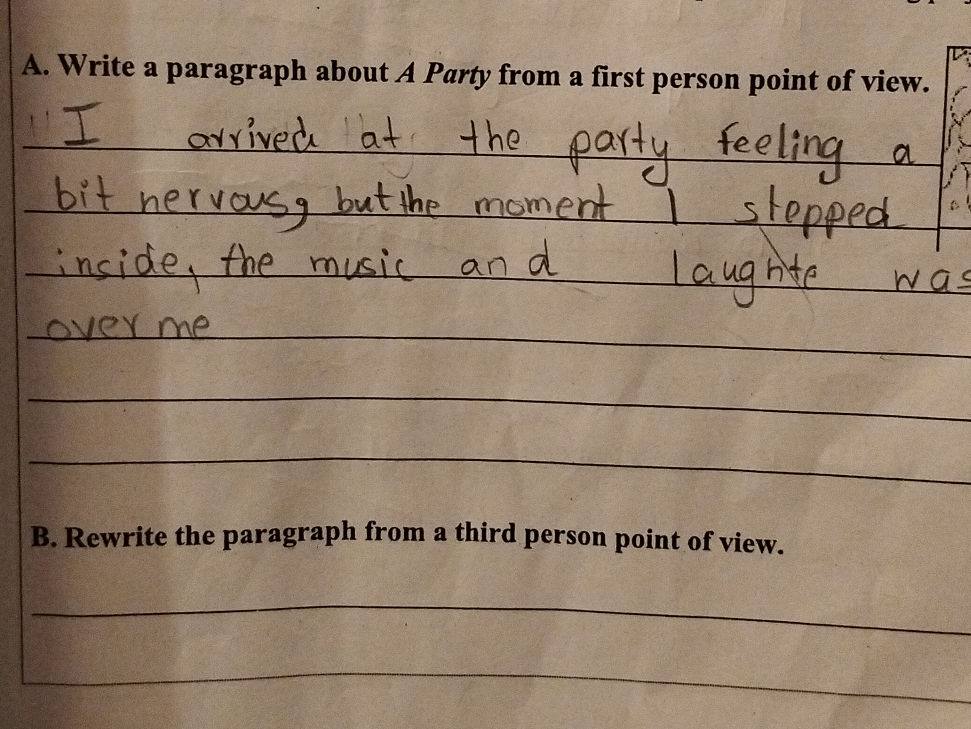 A. Write a paragraph about A Party from a first person point of view.
"I arrived at the party feeling a
bit nervous, but the moment I stepped
inside, the music and laughte was
over me
B. Rewrite the paragraph from a third person point of view.